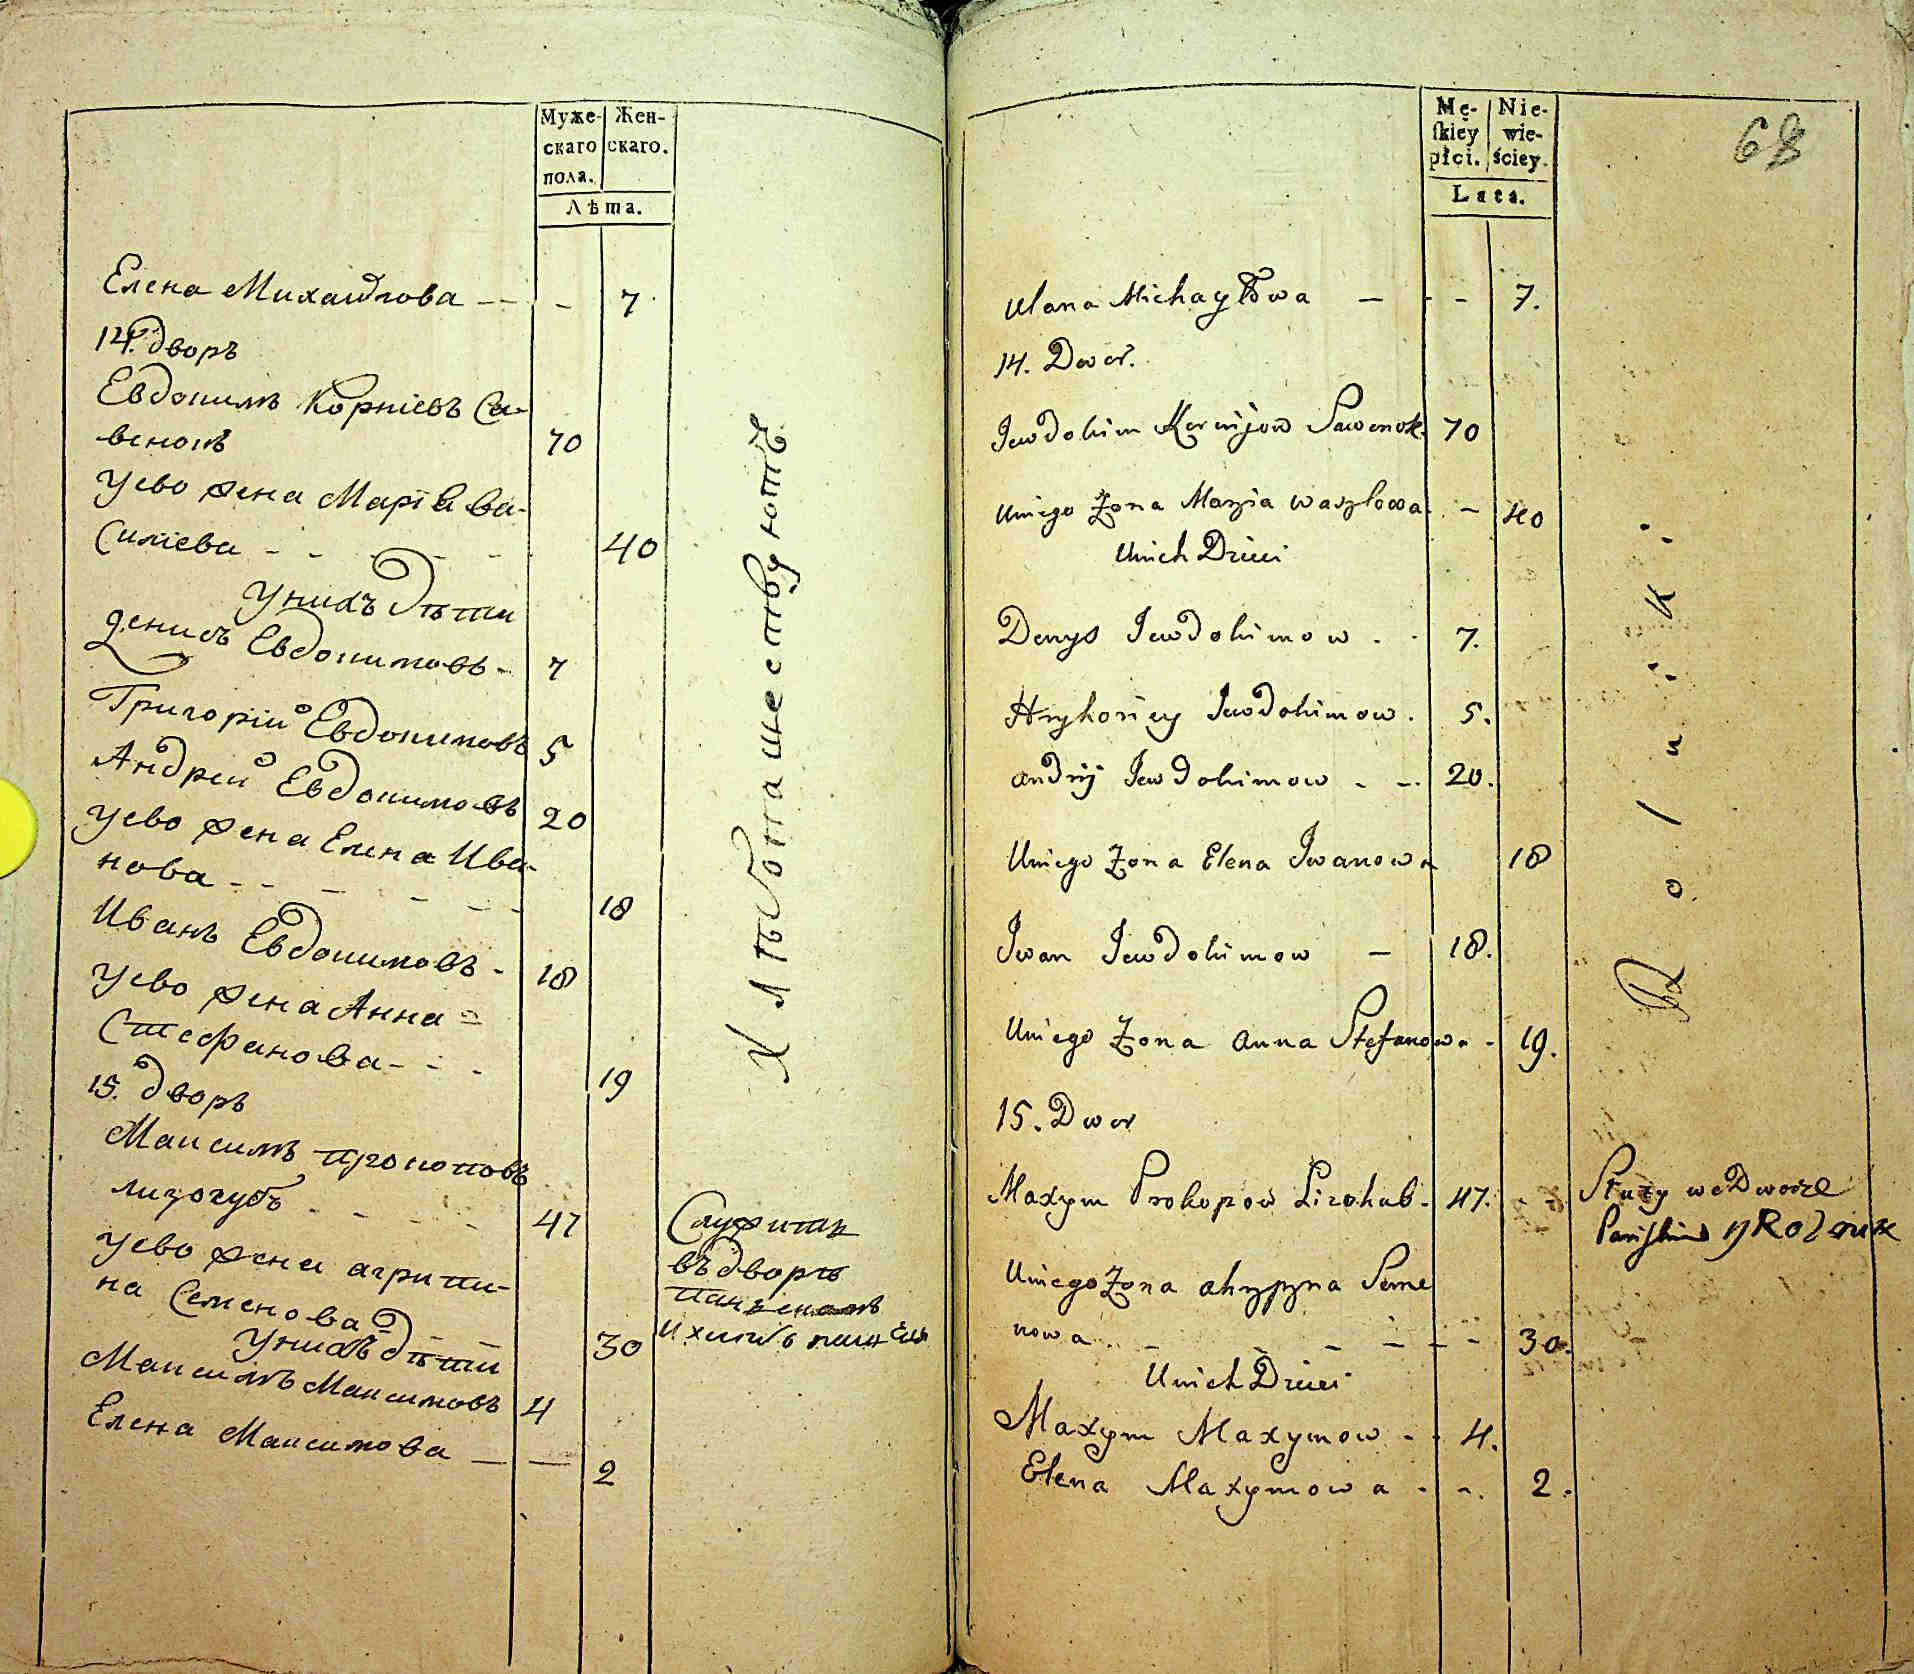 Муже-
скаго
пола.
Жен-
скаго.
Лѣта.
Елена Михайлова - - - 7
14. дворъ
Евдокимъ Корнiевъ Са-
венокъ 70
У ево жена Марiя Ва-
силiева - - - - - 40
У нихъ дѣти
Денисъ Евдокимовъ - 7
Григорiй Евдокимовъ 5
Андрей Евдокимовъ 20
У ево жена Елена Ива-
нова - - - - - - 18
Иванъ Евдокимовъ - 18
У ево жена Анна -
Стефанова - - - 19
15. дворъ
Максимъ Прокоповъ
Лизогубъ - - - - - 47
У ево жена Агрипи-
на Семенова - - - 30
У нихъ дѣти
Максимъ Максимовъ 4
Елена Максимова — — 2
Хлѣбопашествуютъ
Служитъ
въ дворѣ
панскомъ
Mę-
ſkiéy
płci.
Nie-
wie-
ściey.
Lata.
68
Ulana Michayłowa — - - 7.
14. Dwor.
Jewdokim Kornijow Sawenok. 70
U niego Zona Maryia Wasylowa. - 40
U nich Dzieci
Denys Jewdokimow - - 7.
Hryhoriey Jewdokimow. 5.
Andrij Jewdokimow - -. 20.
U niego Zona Elena Iwanowa 18
Iwan Jewdokimow — 18.
U niego Zona Anna Stefanowa - 19.
15. Dwor
Maxym Prokopow Lizohub - 47.
U niego Zona Ahrypyna Seme
nowa - - - - - - 30.
U nich Dzieci
Maxym Maxymow - - 4.
Elena Maxymowa - -. 2.
Rolniki
Służy we Dworze
Pańskim y Rolnik